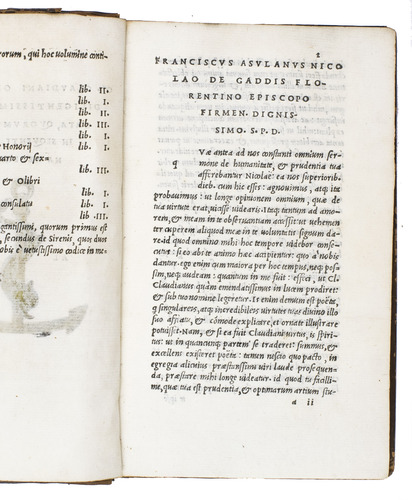 orum, qui hoc volumine conti-
lib. II.
lib. I.
lib. II.
lib. I.
Honorij lib. I.
arto & sex-
lib. III.
& Olibri
lib. I.
consulatu lib. I.
lib. III.
gantissimi, quorum primus est
, secundus de Sirenis, quos duos
è uetustissimo codice in me-
2
FRANCISCVS ASVLANVS NICO
LAO DE GADDIS FLO-
RENTINO EPISCOPO
FIRMEN. DIGNIS-
SIMO. S. P. D.
q Vae antea ad nos constanti omnium ser-
mone de humanitate, & prudentia tua
afferebantur Nicolaë: ea nos superiorib.
dieb. cum hic esses: agnouimus, atq; ita
probauimus: ut longe opinionem omnium, quae de
tua uirtute erat, uicisse uidearis. itaq; tantum ad amo-
rem, & meam in te obseruantiam accessit: ut uehemen
ter cuperem aliquod meae in te uoluntatis signum da-
re. id quod omnino mihi hoc tempore uideor conse-
cutus: si eo abs te animo haec accipientur: quo a' nobis
dantur. ego enim cum maiora per hoc tempus, neq; pos-
sim, neq; audeam: quantum in me fuit: effeci, ut Cl.
Claudianus quàm emendatissimus in lucem prodiret:
& sub tuo nomine legeretur. Is enim demum est poëta,
q singulareis, atq; incredibileis uirtutes tuas diuino illo
suo afflatu, & cõmode explicare, et ornate illustrare
potuisset. Nam, & si ea fuit Claudiani uirtus, is spiri-
tus: ut in quancunq; partem se traderet: summus, &
excellens existeret poëta: tamen nescio quo pacto, in
egregia alicuius praestantissimi uiri laude prosequen-
da, praestare mihi longe uidetur. id quod tu facilli-
me, quae tua est prudentia, & optimarum artium stu-
a ii